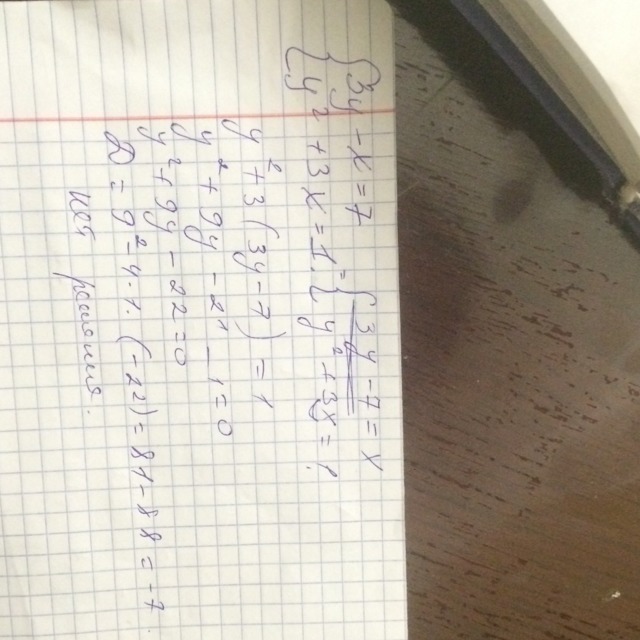 { 3y - x = 7
{ y² + 3x = 1 = { 3y - 7 = x
{ y² + 3x = 1.
y² + 3(3y - 7) = 1
y² + 9y - 21 - 1 = 0
y² + 9y - 22 = 0
D = 9² - 4 · 1 · (-22) = 81 - 88 = -7
нет решения.